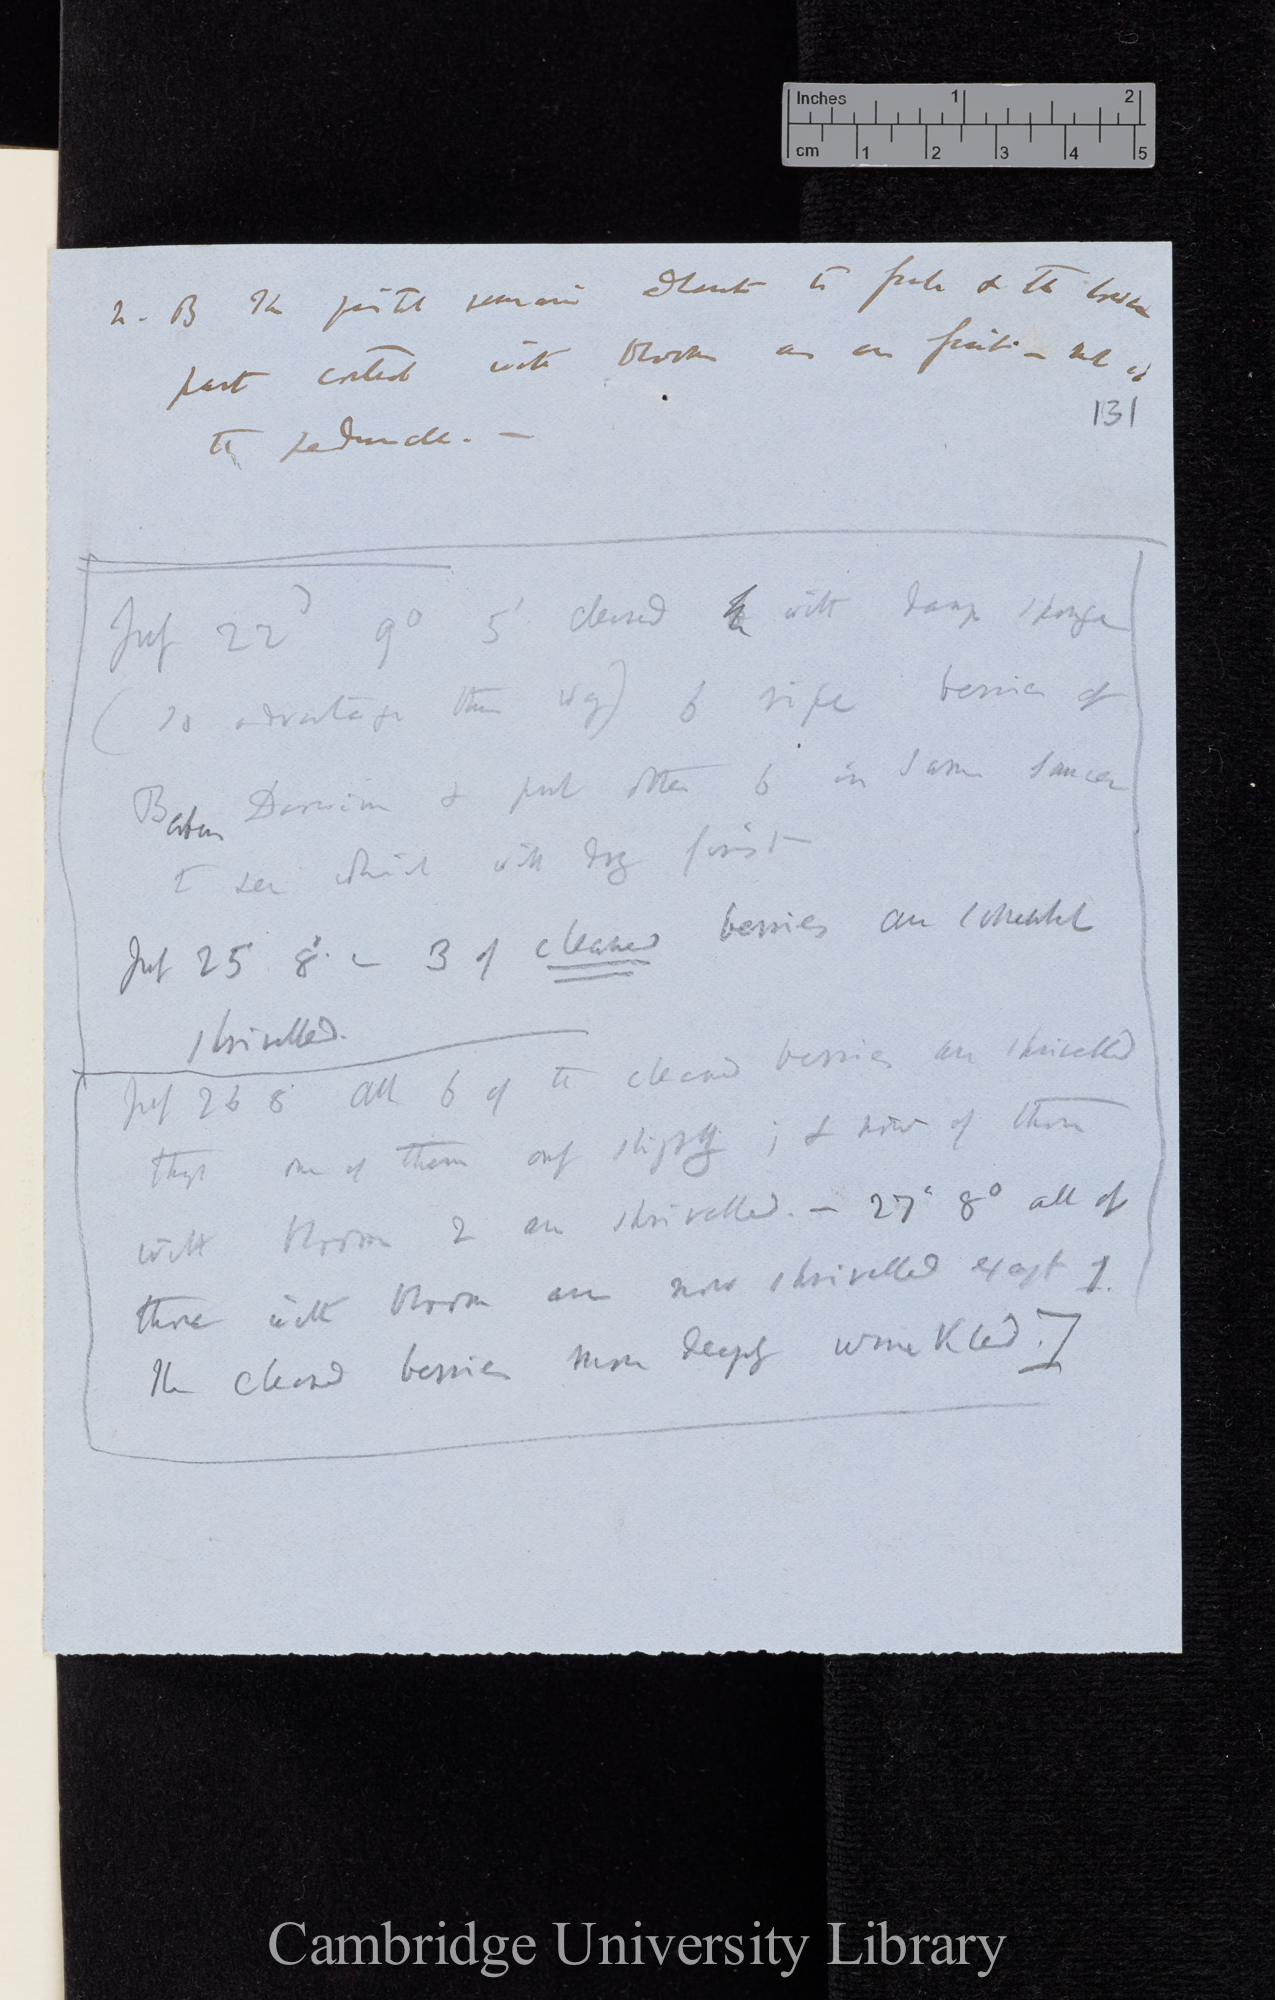 Inches 1 2
cm 1 2 3 4 5
N. B The pistil remains to & the
part coated with bloom as are fruit — not is
131
the peduncle. —
July 22d 9° 5' cleaned with damp sponge
(no advantage this way) 6 ripe berries of
Berberis Darwinii & put other 6 in same saucer
to see which will dry first
July 25 8° — 3 of cleaned berries are somewhat
shrivelled.
July 26 8° all 6 of the cleaned berries are shrivelled
though one of them only slightly; & now of those
with bloom 2 are shrivelled. — 27th 8° all of
those with bloom are now shrivelled except 1.
The cleaned berries more deeply wrinkled.]
Cambridge University Library